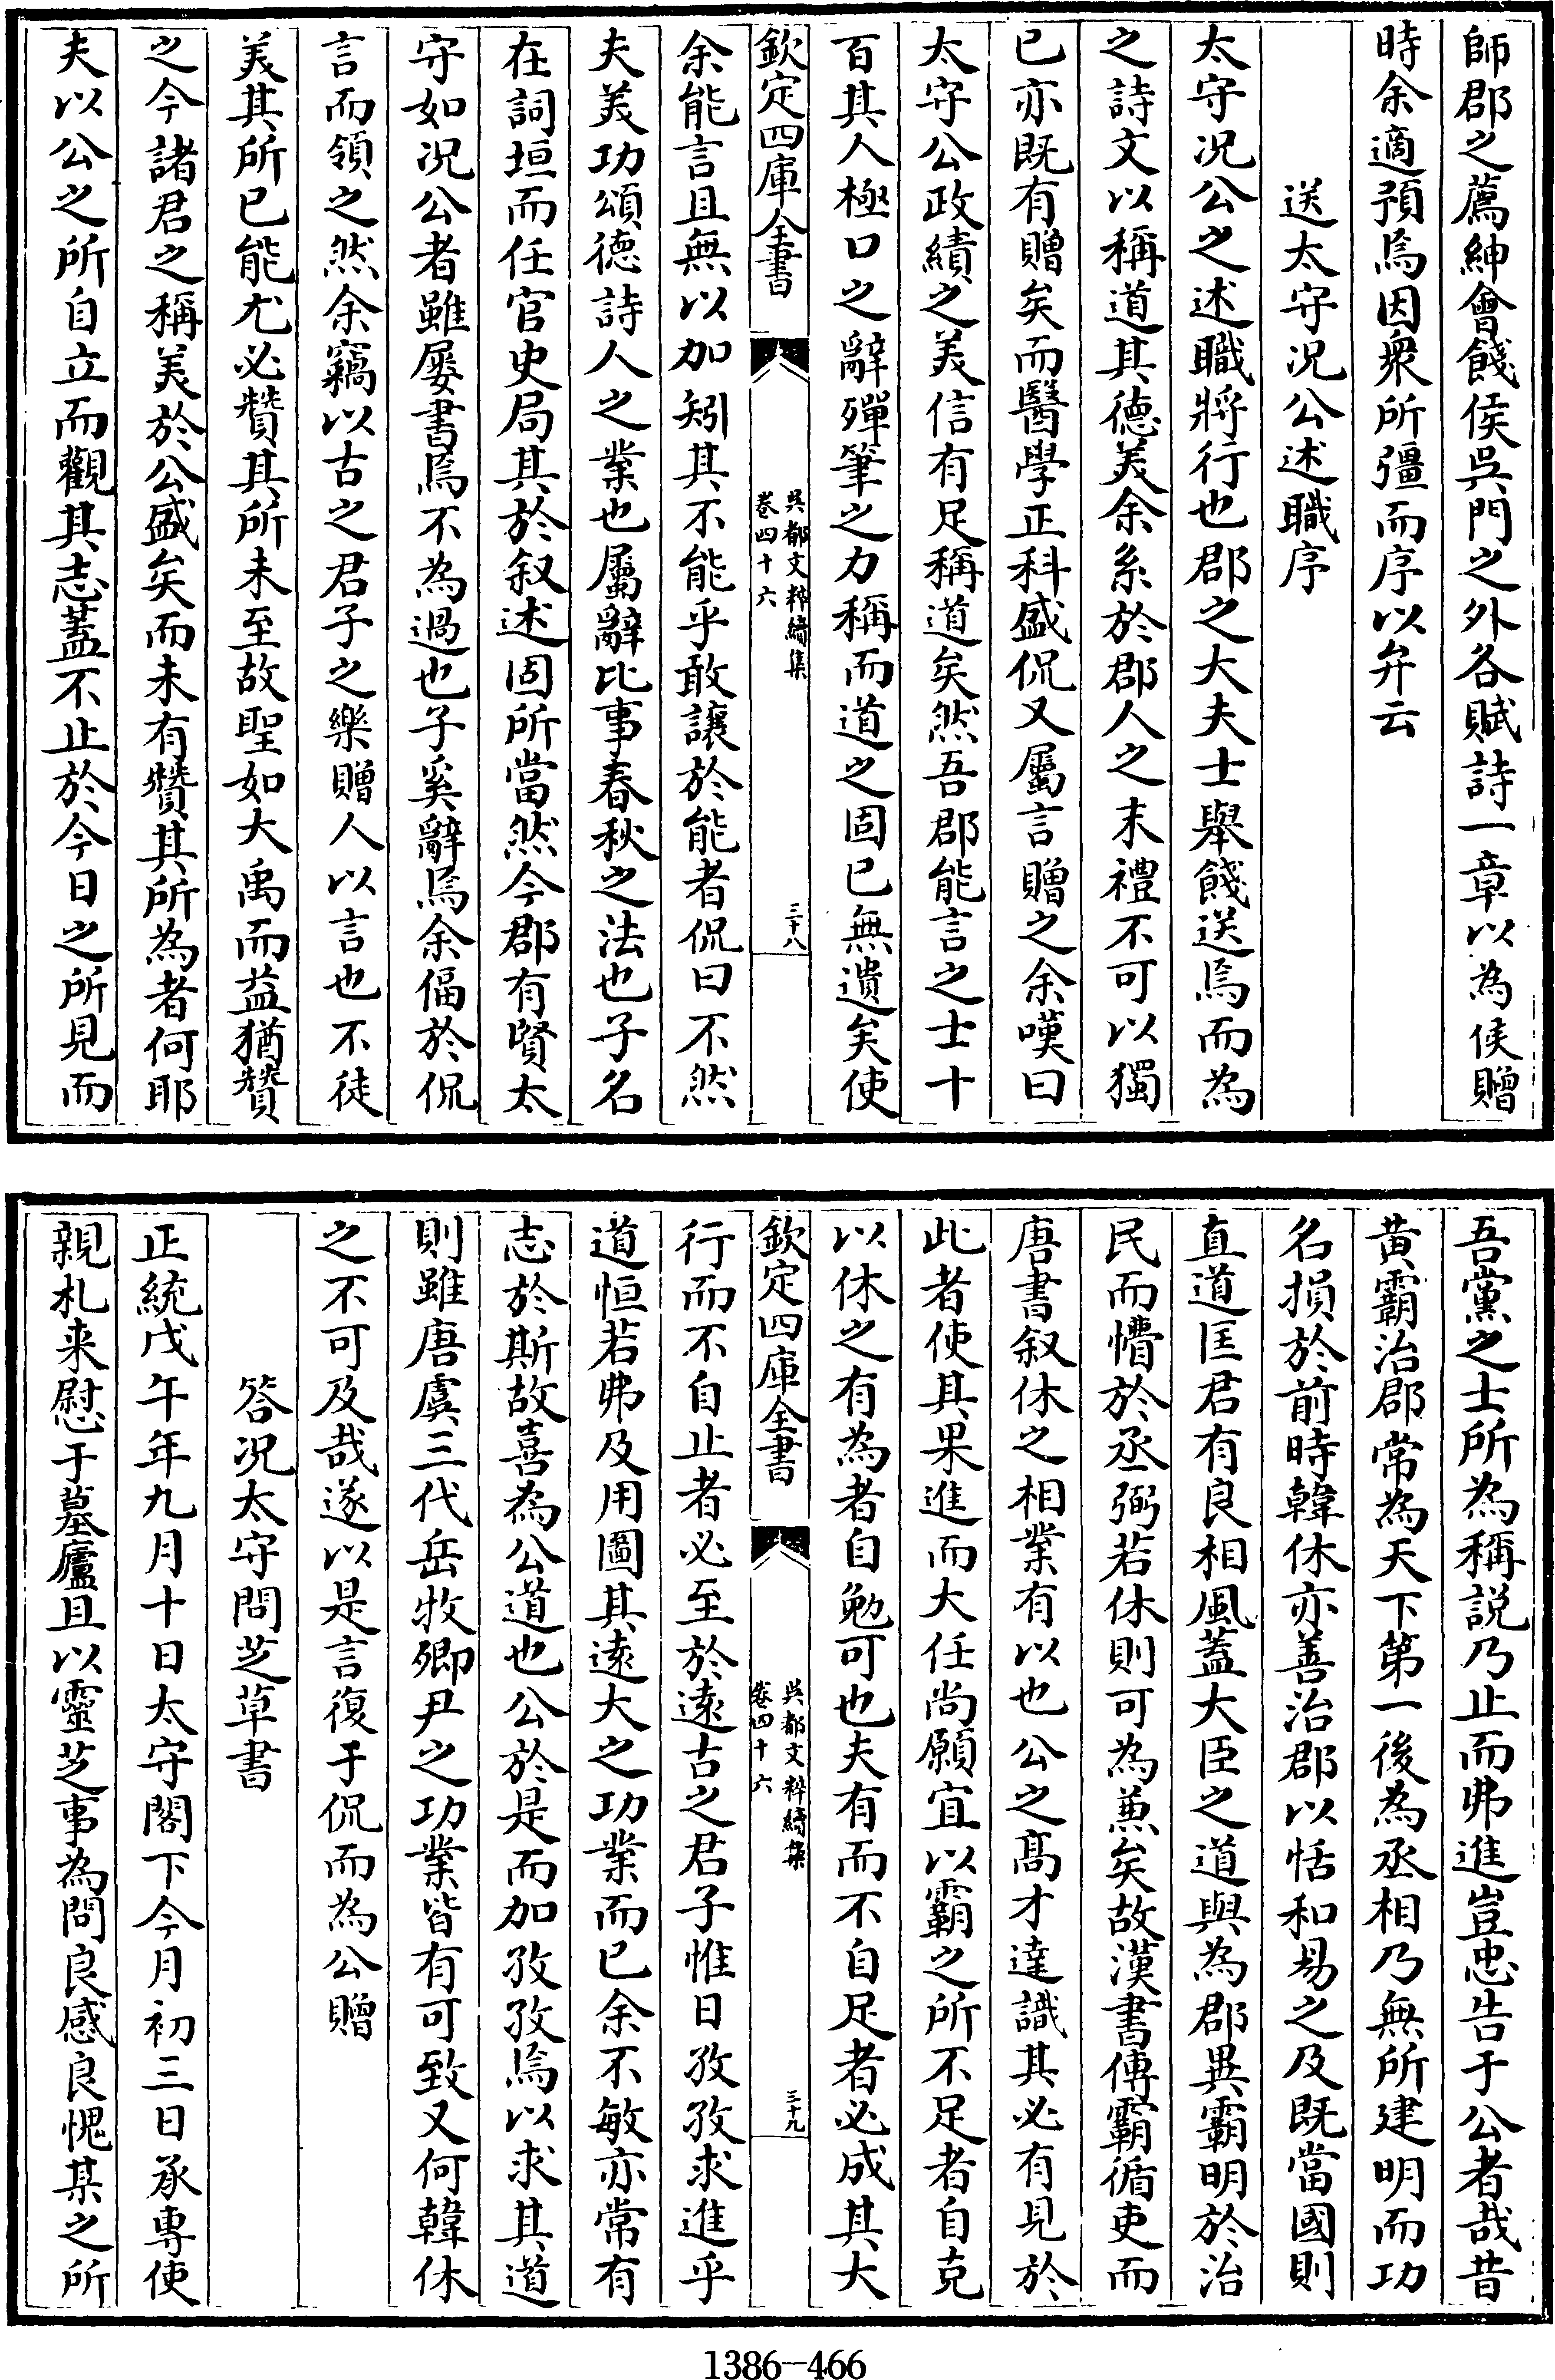 師郡之薦紳會餞侯吳門之外各賦詩一章以為侯贈
時余適預焉因衆所彊而序以弁云
送太守况公述職序
太守况公之述職將行也郡之大夫士舉餞送焉而為
之詩文以稱道其德美余系於郡人之末禮不可以獨
已亦既有贈矣而醫學正科盛侃又屬言贈之余嘆曰
太守公政績之美信有足稱道矣然吾郡能言之士十
百其人極口之辭殫筆之力稱而道之固已無遺矣使
欽定四庫全書
吳都文粹續集
卷四十六
三十八
余能言且無以加矧其不能乎敢讓於能者侃曰不然
夫美功頌德詩人之業也屬辭比事春秋之法也子名
在詞垣而任官史局其於叙述固所當然今郡有賢太
守如况公者雖屢書焉不為過也子奚辭焉余偪於侃
言而領之然余竊以古之君子之樂贈人以言也不徒
美其所已能尤必贊其所未至故聖如大禹而益猶贊
之今諸君之稱美於公盛矣而未有贊其所為者何耶
夫以公之所自立而觀其志蓋不止於今日之所見而
吾黨之士所為稱説乃止而弗進豈忠告于公者哉昔
黄霸治郡常為天下第一後為丞相乃無所建明而功
名損於前時韓休亦善治郡以恬和易之及既當國則
直道匡君有良相風蓋大臣之道與為郡異霸明於治
民而懵於丞弼若休則可為兼矣故漢書傳霸循吏而
唐書叙休之相業有以也公之髙才達識其必有見於
此者使其果進而大任尚願宜以霸之所不足者自克
以休之有為者自勉可也夫有而不自足者必成其大
欽定四庫全書
吳都文粹續集
卷四十六
三十九
行而不自止者必至於遠古之君子惟日孜孜求進乎
道恒若弗及用圖其遠大之功業而已余不敏亦常有
志於斯故喜為公道也公於是而加孜孜焉以求其道
則雖唐虞三代岳牧卿尹之功業皆有可致又何韓休
之不可及哉遂以是言復于侃而為公贈
答况太守問芝草書
正統戊午年九月十日太守閣下今月初三日承專使
親札来慰于墓廬且以靈芝事為問良感良愧某之所
1386-466